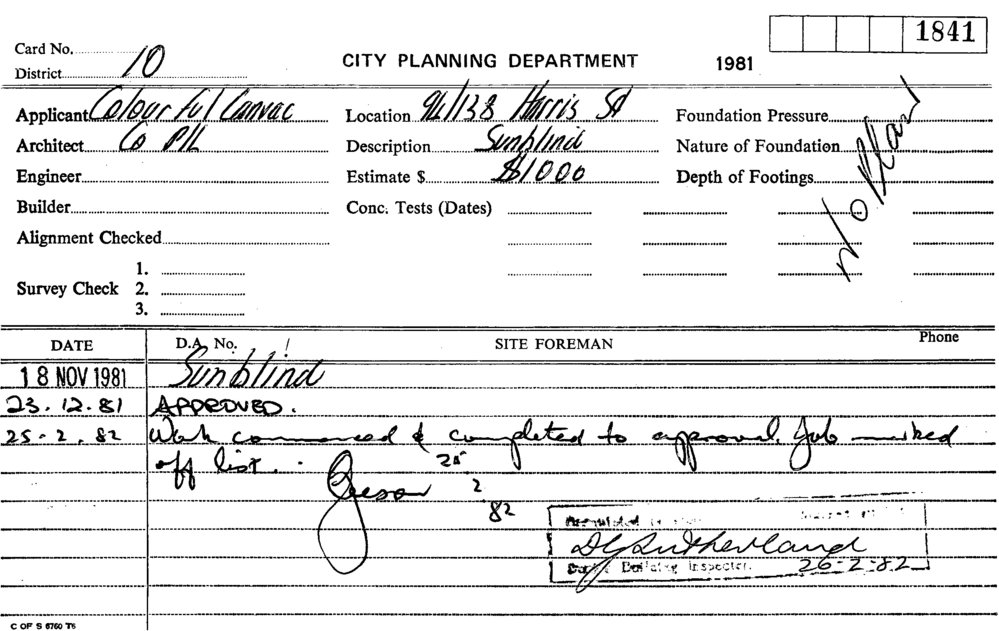 1841
Card No. 10
District
CITY PLANNING DEPARTMENT 1981
Applicant Colourful Canvac Location 94/138 Harris St Foundation Pressure
Architect Co P/L Description Sunblind Nature of Foundation
Engineer Estimate $ $1000 Depth of Footings
No Plan
Builder Conc. Tests (Dates)
Alignment Checked
1.
Survey Check 2.
3.
DATE D.A. No. SITE FOREMAN Phone
18 NOV 1981 Sunblind
23.12.81 APPROVED.
25-2.82 Work commenced & completed to approval. Job marked
off list.
25
2
82
DG Sutherland
Building Inspector. 26-2-82
C OF S 6760 T6